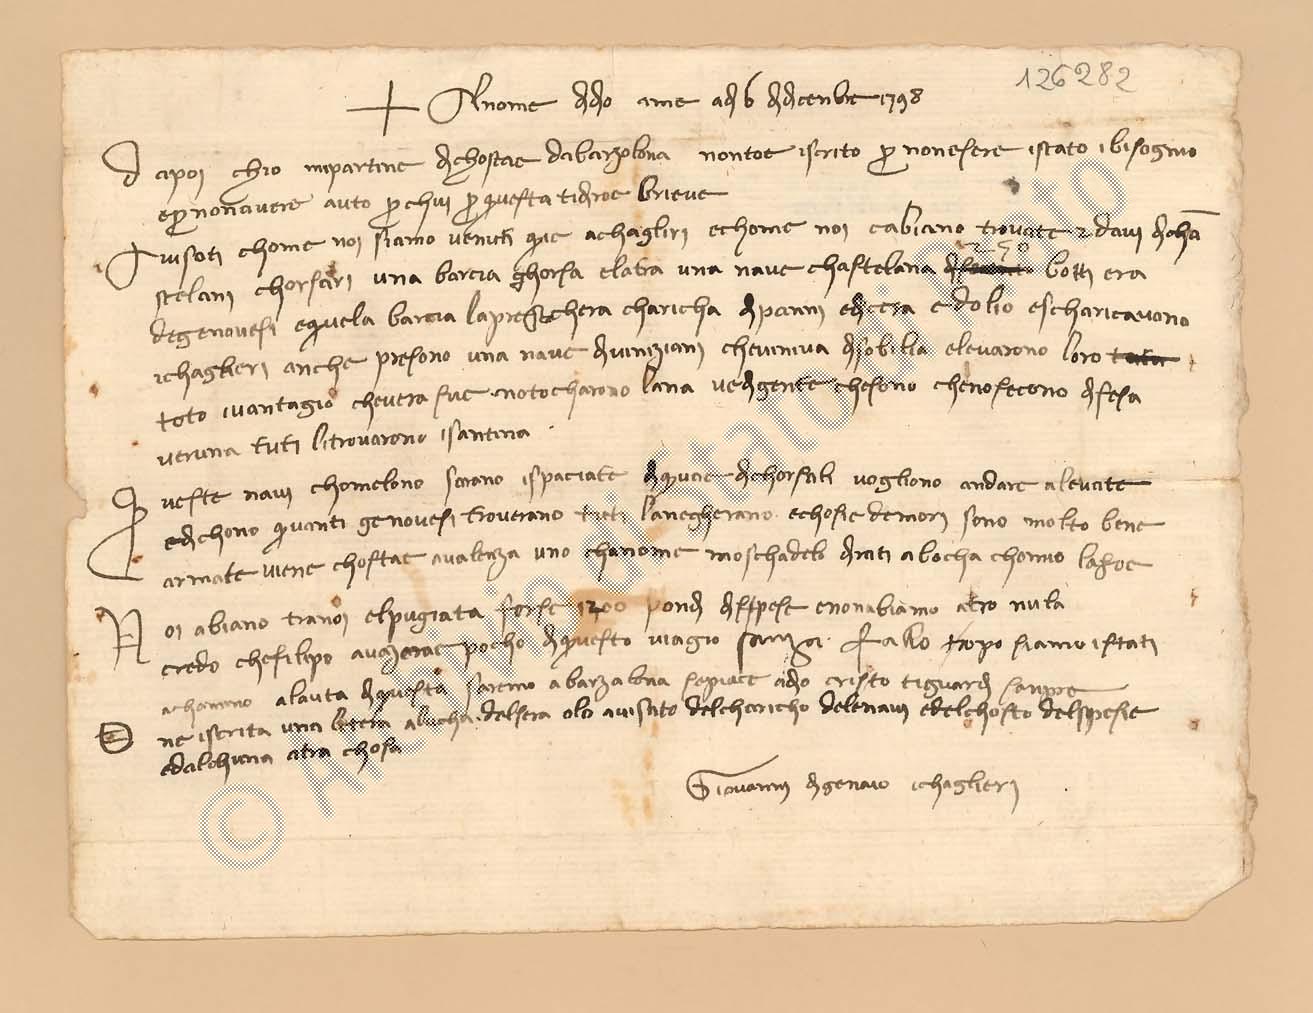 126282
Al nome di dio ame adi 6 di dicenbre 1398
Dapoi ch'io mi partine di chostae da barzalona non to e iscrito p non esere istato i bisogno
e p non avere auto p chui p questa ti diroe brieve
Avisoti chome noi siamo venuti que a chaglieri e chome noi cabiano trovate 2 davi di cha
stelani chorsari una barcia ghorsa e latra una nave chastelana di 250 botti era
de genovesi e quela barcia la prese chera charicha di panni e di cera e d olio e scharicavono
i chaglieri anche presono una nave di viniziani che veniva di sobilia e levarono loro tuta
toto i vantagio che vera sue no tocharono lana ve di gente che sono che no fecono difesa
veruna tuti li trovarono i santina
Queste navi chome lono sarano ispaciate di que di chorsali vogliono andare a levante
e dichono quanti genovesi troverano tuti l anegherano e chosie de mori sono molto bene
armate viene chostae a valenza uno cha nome moschadelo di mti a bocha chonmo
Noi abiano tranoi el pugiata forse 1200 pondi di spese e non abiamo atro nula
credo che filipo avazerae pocho di questo viagio sanza falo tropo siamo istati
a chamino a lauta di questa saremo a barzalona se piace a dio cristo ti guardi senpre
ne iscrita una letera a lucha del sera olo avisato del charicho dele navi e del chosto del spesie
e d alchuna atra chosa
Giovanni di genaio i chaglieri
© Archivio di Stato di Prato